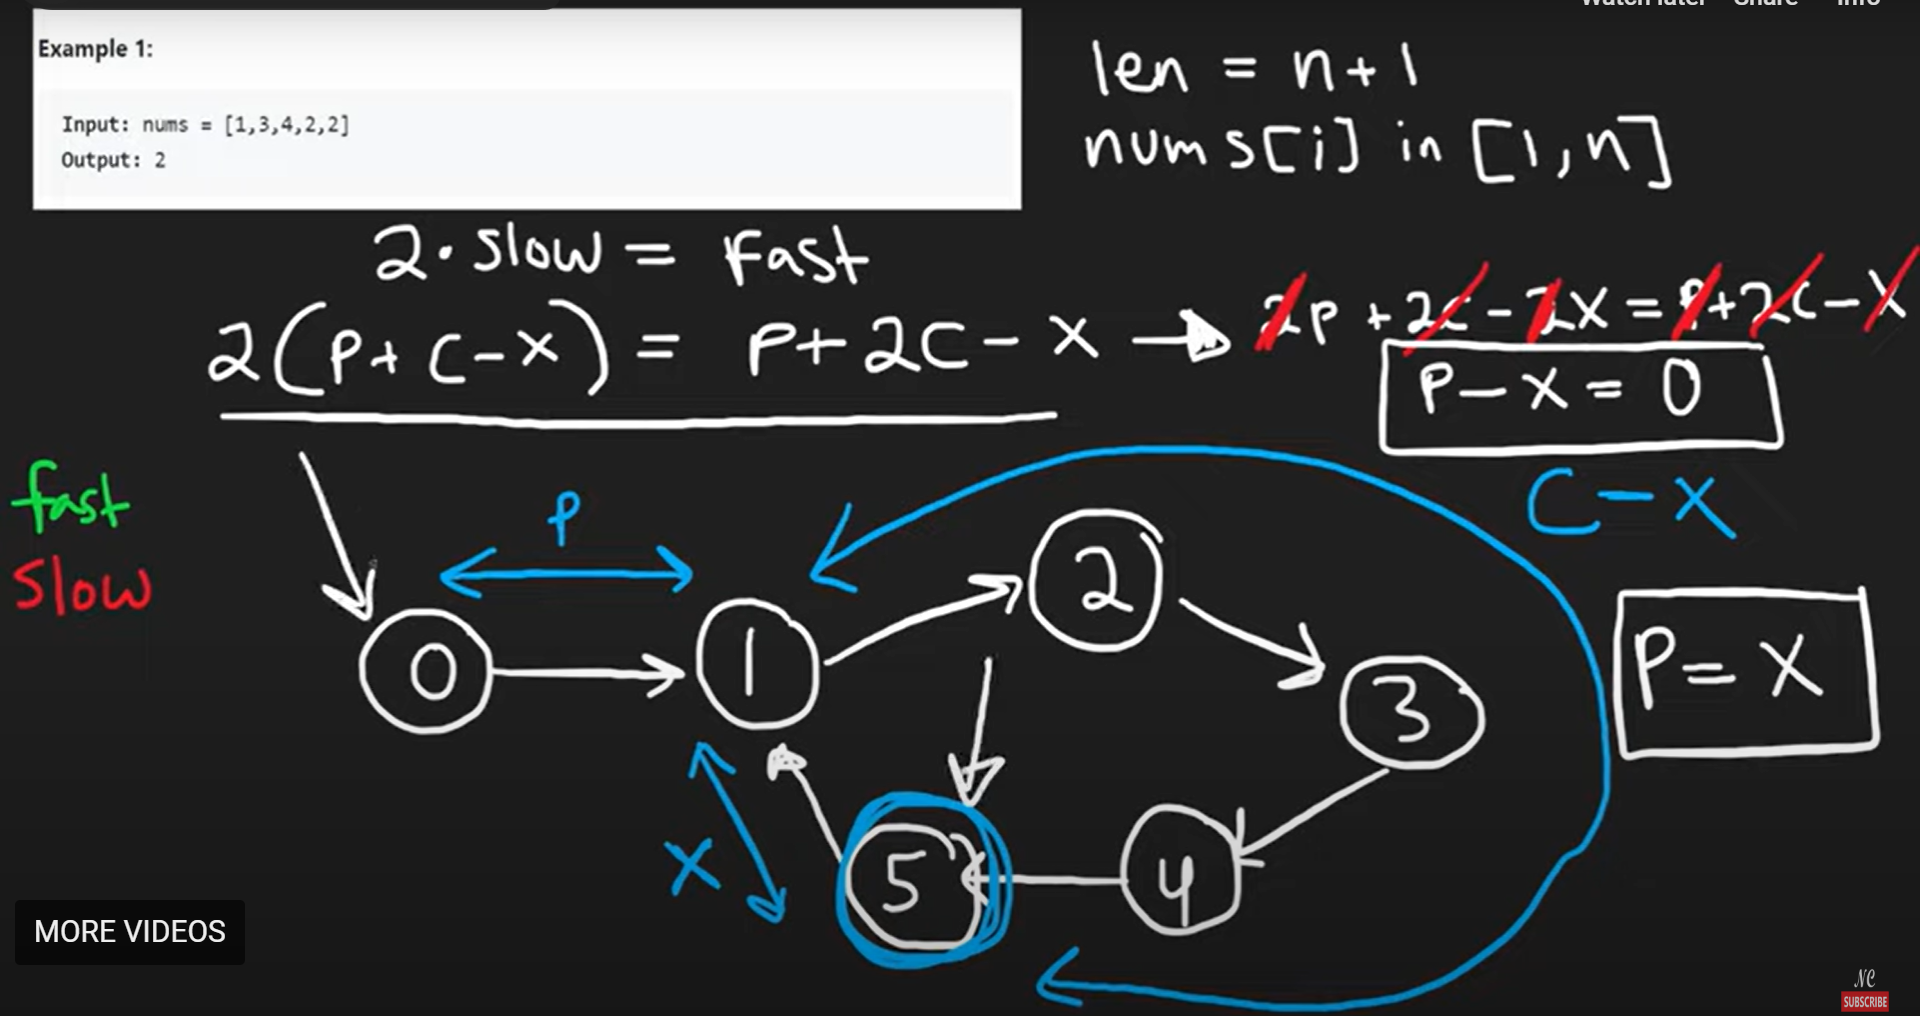 Watch later Share Info
Example 1:
Input: nums = [1,3,4,2,2]
Output: 2
len = n+1
nums[i] in [1,n]
2·slow = Fast
2(P+C-X) = P+2C-X → 2P+2C-2X=P+2C-X
P-X=0
C-X
fast
slow
P
0
1
2
3
4
5
X
P=X
MORE VIDEOS
NC
SUBSCRIBE